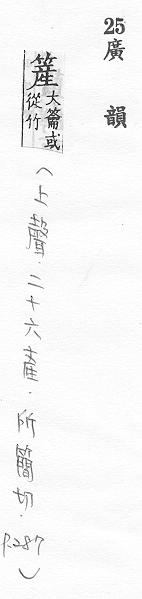 25 廣韻
簅大籥或
從竹
(上聲.二十六產.所簡切.
p.287)